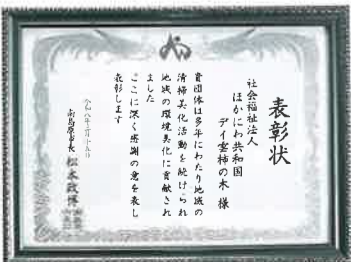 表彰状
社会福祉法人
ほかにわ共和国
デイ室柿の木 様
貴団体は多年にわたり地域の
清掃美化活動を続けられ
地域の環境美化に貢献され
ました
ここに深く感謝の意を表し
表彰します
南島原市長 松本政博